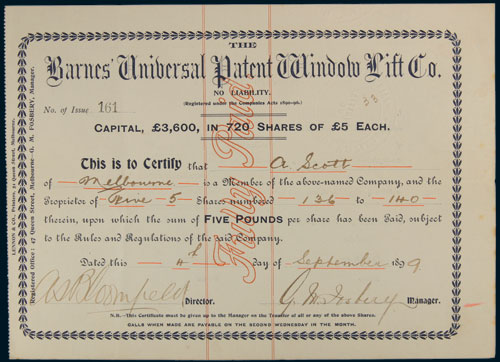 THE
Barnes' Universal Patent Window Lift Co.
NO LIABILITY.
(Registered under the Companies Acts 1890-96.)
No. of Issue 161
CAPITAL, £3,600, IN 720 SHARES OF £5 EACH.
This is to Certify that A. Scott
of Melbourne is a Member of the above-named Company, and the
Proprietor of Five 5 Shares numbered 136 to 140
therein, upon which the sum of FIVE POUNDS per share has been Paid, subject
to the Rules and Regulations of the said Company.
Dated this 4th day of September 1899
Director.
Manager.
N.B.—This Certificate must be given up to the Manager on the Transfer of all or any of the above Shares.
CALLS WHEN MADE ARE PAYABLE ON THE SECOND WEDNESDAY IN THE MONTH.
Fully Paid
Registered Office: 47 Queen Street, Melbourne—G. M. FOSBERY, Manager.